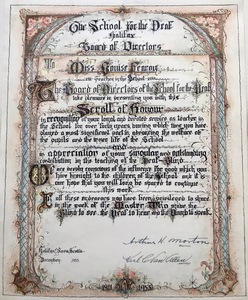 The School for the Deaf
Halifax
Board of Directors
To Miss Louise
Teacher in the School
The Board of Directors of the School for the Deaf
take pleasure in presenting you with this
Scroll of Honour
in recognition of your loyal and devoted service as teacher in
the School for over forty years, during which you have
played a most significant part in advancing the welfare of
the pupils and the inner life of the School
and in
appreciation of your singular and outstanding
contribution in the teaching of the Deaf-Blind.
We are deeply conscious of the influence for good which you
have brought to the children of the School and it is
our hope that you will long be spared to continue
this work.
In all these endeavours you have been privileged to share
in the work of the Master Who gave the
Blind to see the Deaf to hear and the Dumb to speak.
Arthur H. Morton
Halifax, Nova Scotia
December, 1953
1953